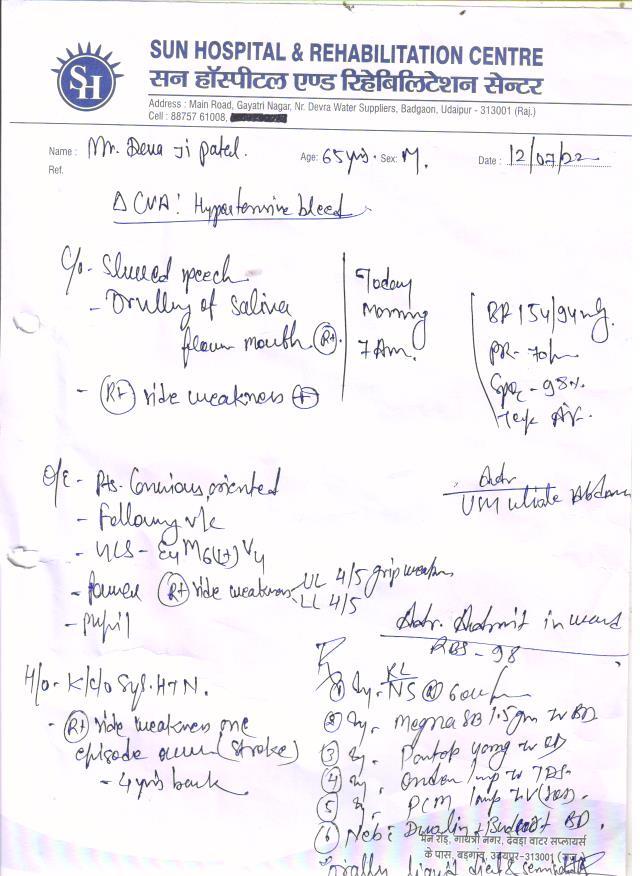 SH
SUN HOSPITAL & REHABILITATION CENTRE
सन हॉस्पीटल एण्ड रिहेबिलिटेशन सेन्टर
Address : Main Road, Gayatri Nagar, Nr. Devra Water Suppliers, Badgaon, Udaipur - 313001 (Raj.)
Cell : 88757 61008,
Name : Mr. Deva Ji Patel. Age: 65 yrs. Sex: M. Date : 12/07/22
Ref.
Δ CVA : Hypertensive bleed
C/o - Slurred speech
- Drulling of Saliva
from mouth (Rt).
- (Rt) side weakness (+)
Today
Morning
7 Am.
BP 154/94
PR - 70
SpO2 - 98%
Adv
USM whole Abdomen
O/E - Pts. Concious, oriented
- Following v/c
- GCS - E4 M6(Lt) V4
- Power (Rt) side weakness UL 4/5 grip weakness
LL 4/5
- Pupil
Adv. Admit in ward
RBS - 98
H/o - K/c/o Sys. HTN.
- (Rt) side weakness one
episode (Stroke)
- 4 yrs back
(1) Inj. NS
RL
(2) Inj. Magna SB 1.5 gm IV BD
(3) Inj. Pantop 40mg IV OD
(4) Inj. Ondem 1 amp IV TDS.
(5) Inj. PCM 1 amp IV (SOS).
(6) Neb c Duolin + Budecort BD.
मेन रोड, गायत्री नगर, देवड़ा वाटर सप्लायर्स
के पास, बड़गांव, उदयपुर-313001 (राज.)
orally liquid diet &